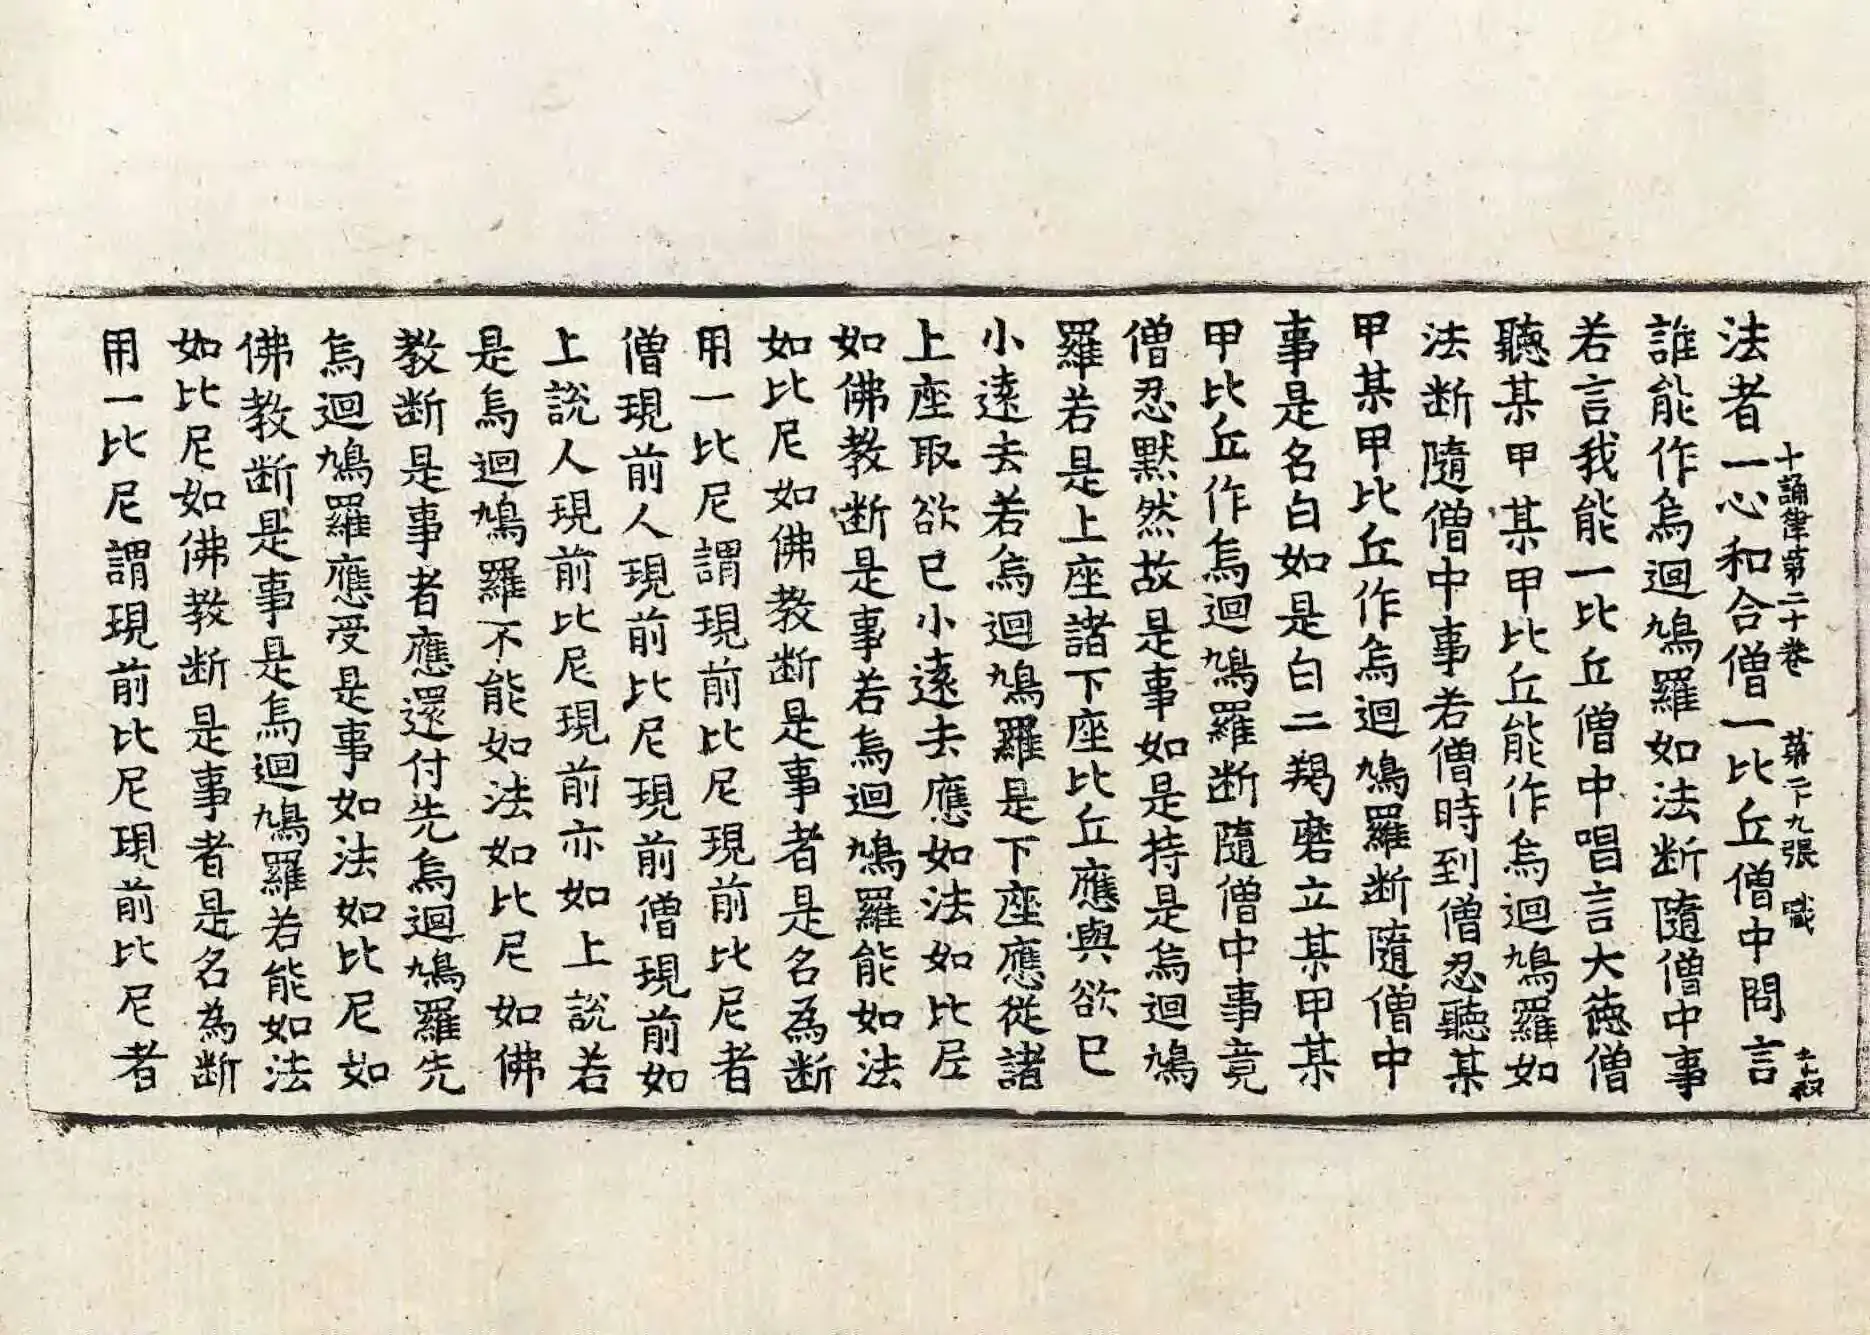 十誦律第二十卷　第二十九張　職
法者一心和合僧一比丘僧中問言
誰能作烏迴鳩羅如法断隨僧中事
若言我能一比丘僧中唱言大德僧
聽某甲某甲比丘能作烏迴鳩羅如
法断隨僧中事若僧時到僧忍聽某
甲某甲比丘作烏迴鳩羅断隨僧中
事是名白如是白二羯磨立某甲某
甲比丘作烏迴鳩羅断隨僧中事竟
僧忍默然故是事如是持是烏迴鳩
羅若是上座諸下座比丘應與欲已
小遠去若烏迴鳩羅是下座應從諸
上座取欲已小遠去應如法如比尼
如佛教断是事若烏迴鳩羅能如法
如比尼如佛教断是事者是名為断
用一比尼謂現前比尼現前比尼者
僧現前人現前比尼現前僧現前如
上說人現前比尼現前亦如上說若
是烏迴鳩羅不能如法如比尼如佛
教断是事者應還付先烏迴鳩羅先
烏迴鳩羅應受是事如法如比尼如
佛教断是事是烏迴鳩羅若能如法
如比尼如佛教断是事者是名為断
用一比尼謂現前比尼現前比尼者